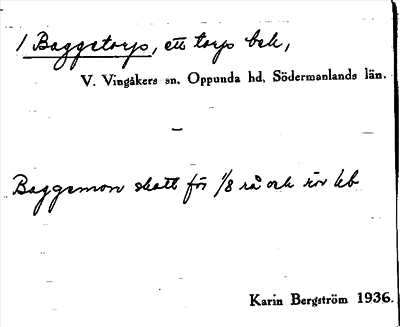 1 Baggetorp, ett torp bek,
V. Vingåkers sn, Oppunda hd, Södermanlands län.
Baggemon skatt för 1/8 rå och rör hb
Karin Bergström 1936.